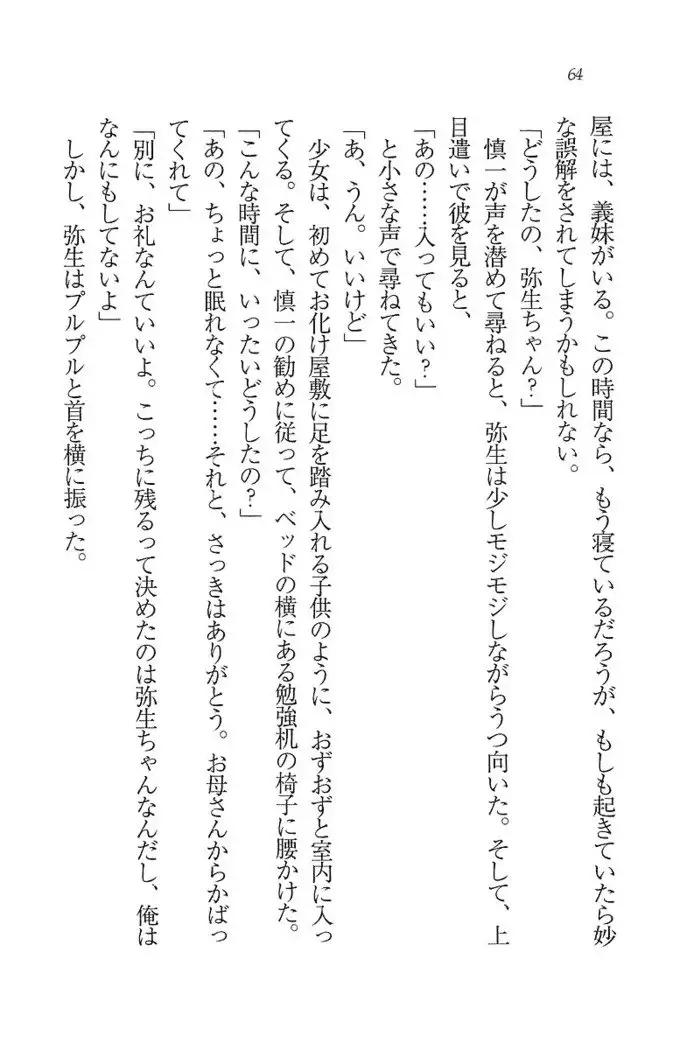 64
屋には、義妹がいる。この時間なら、もう寝ているだろうが、もしも起きていたら妙
な誤解をされてしまうかもしれない。
「どうしたの、弥生ちゃん？」
慎一が声を潜めて尋ねると、弥生は少しモジモジしながらうつ向いた。そして、上
目遣いで彼を見ると、
「あの……入ってもいい？」
と小さな声で尋ねてきた。
「あ、うん。いいけど」
少女は、初めてお化け屋敷に足を踏み入れる子供のように、おずおずと室内に入っ
てくる。そして、慎一の勧めに従って、ベッドの横にある勉強机の椅子に腰かけた。
「こんな時間に、いったいどうしたの？」
「あの、ちょっと眠れなくて……それと、さっきはありがとう。お母さんからかばっ
てくれて」
「別に、お礼なんていいよ。こっちに残るって決めたのは弥生ちゃんなんだし、俺は
なんにもしてないよ」
しかし、弥生はプルプルと首を横に振った。